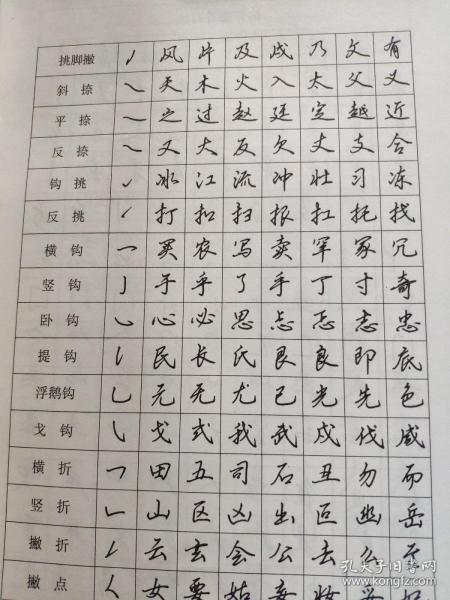 挑脚撇 丿 风 片 及 成 乃 文 有
斜捺 ㇏ 天 木 火 入 太 父 义
平捺 ㇏ 之 过 赵 廷 定 越 近
反捺 ㇏ 又 大 反 欠 丈 支 合
钩挑 冰 江 流 冲 壮 习 冻
反挑 打 扣 扫 报 扛 托 找
横钩 乛 买 农 写 卖 罕 冢 冗
竖钩 亅 于 乎 了 手 丁 寸 奇
卧钩 ㇃ 心 必 思 忐 忘 志 忠
提钩 民 长 氏 艮 良 即 底
浮鹅钩 乚 元 无 尤 已 光 先 色
戈钩 ㇂ 戈 式 我 武 成 伐 威
横折 ㇕ 田 五 司 石 丑 勿 而
竖折 ㇗ 山 区 凶 出 巨 幽 岳
撇折 ㇜ 云 玄 会 公 去 么 至
撇点 ㇛ 女 要 姑 妄 妆
孔夫子旧书网